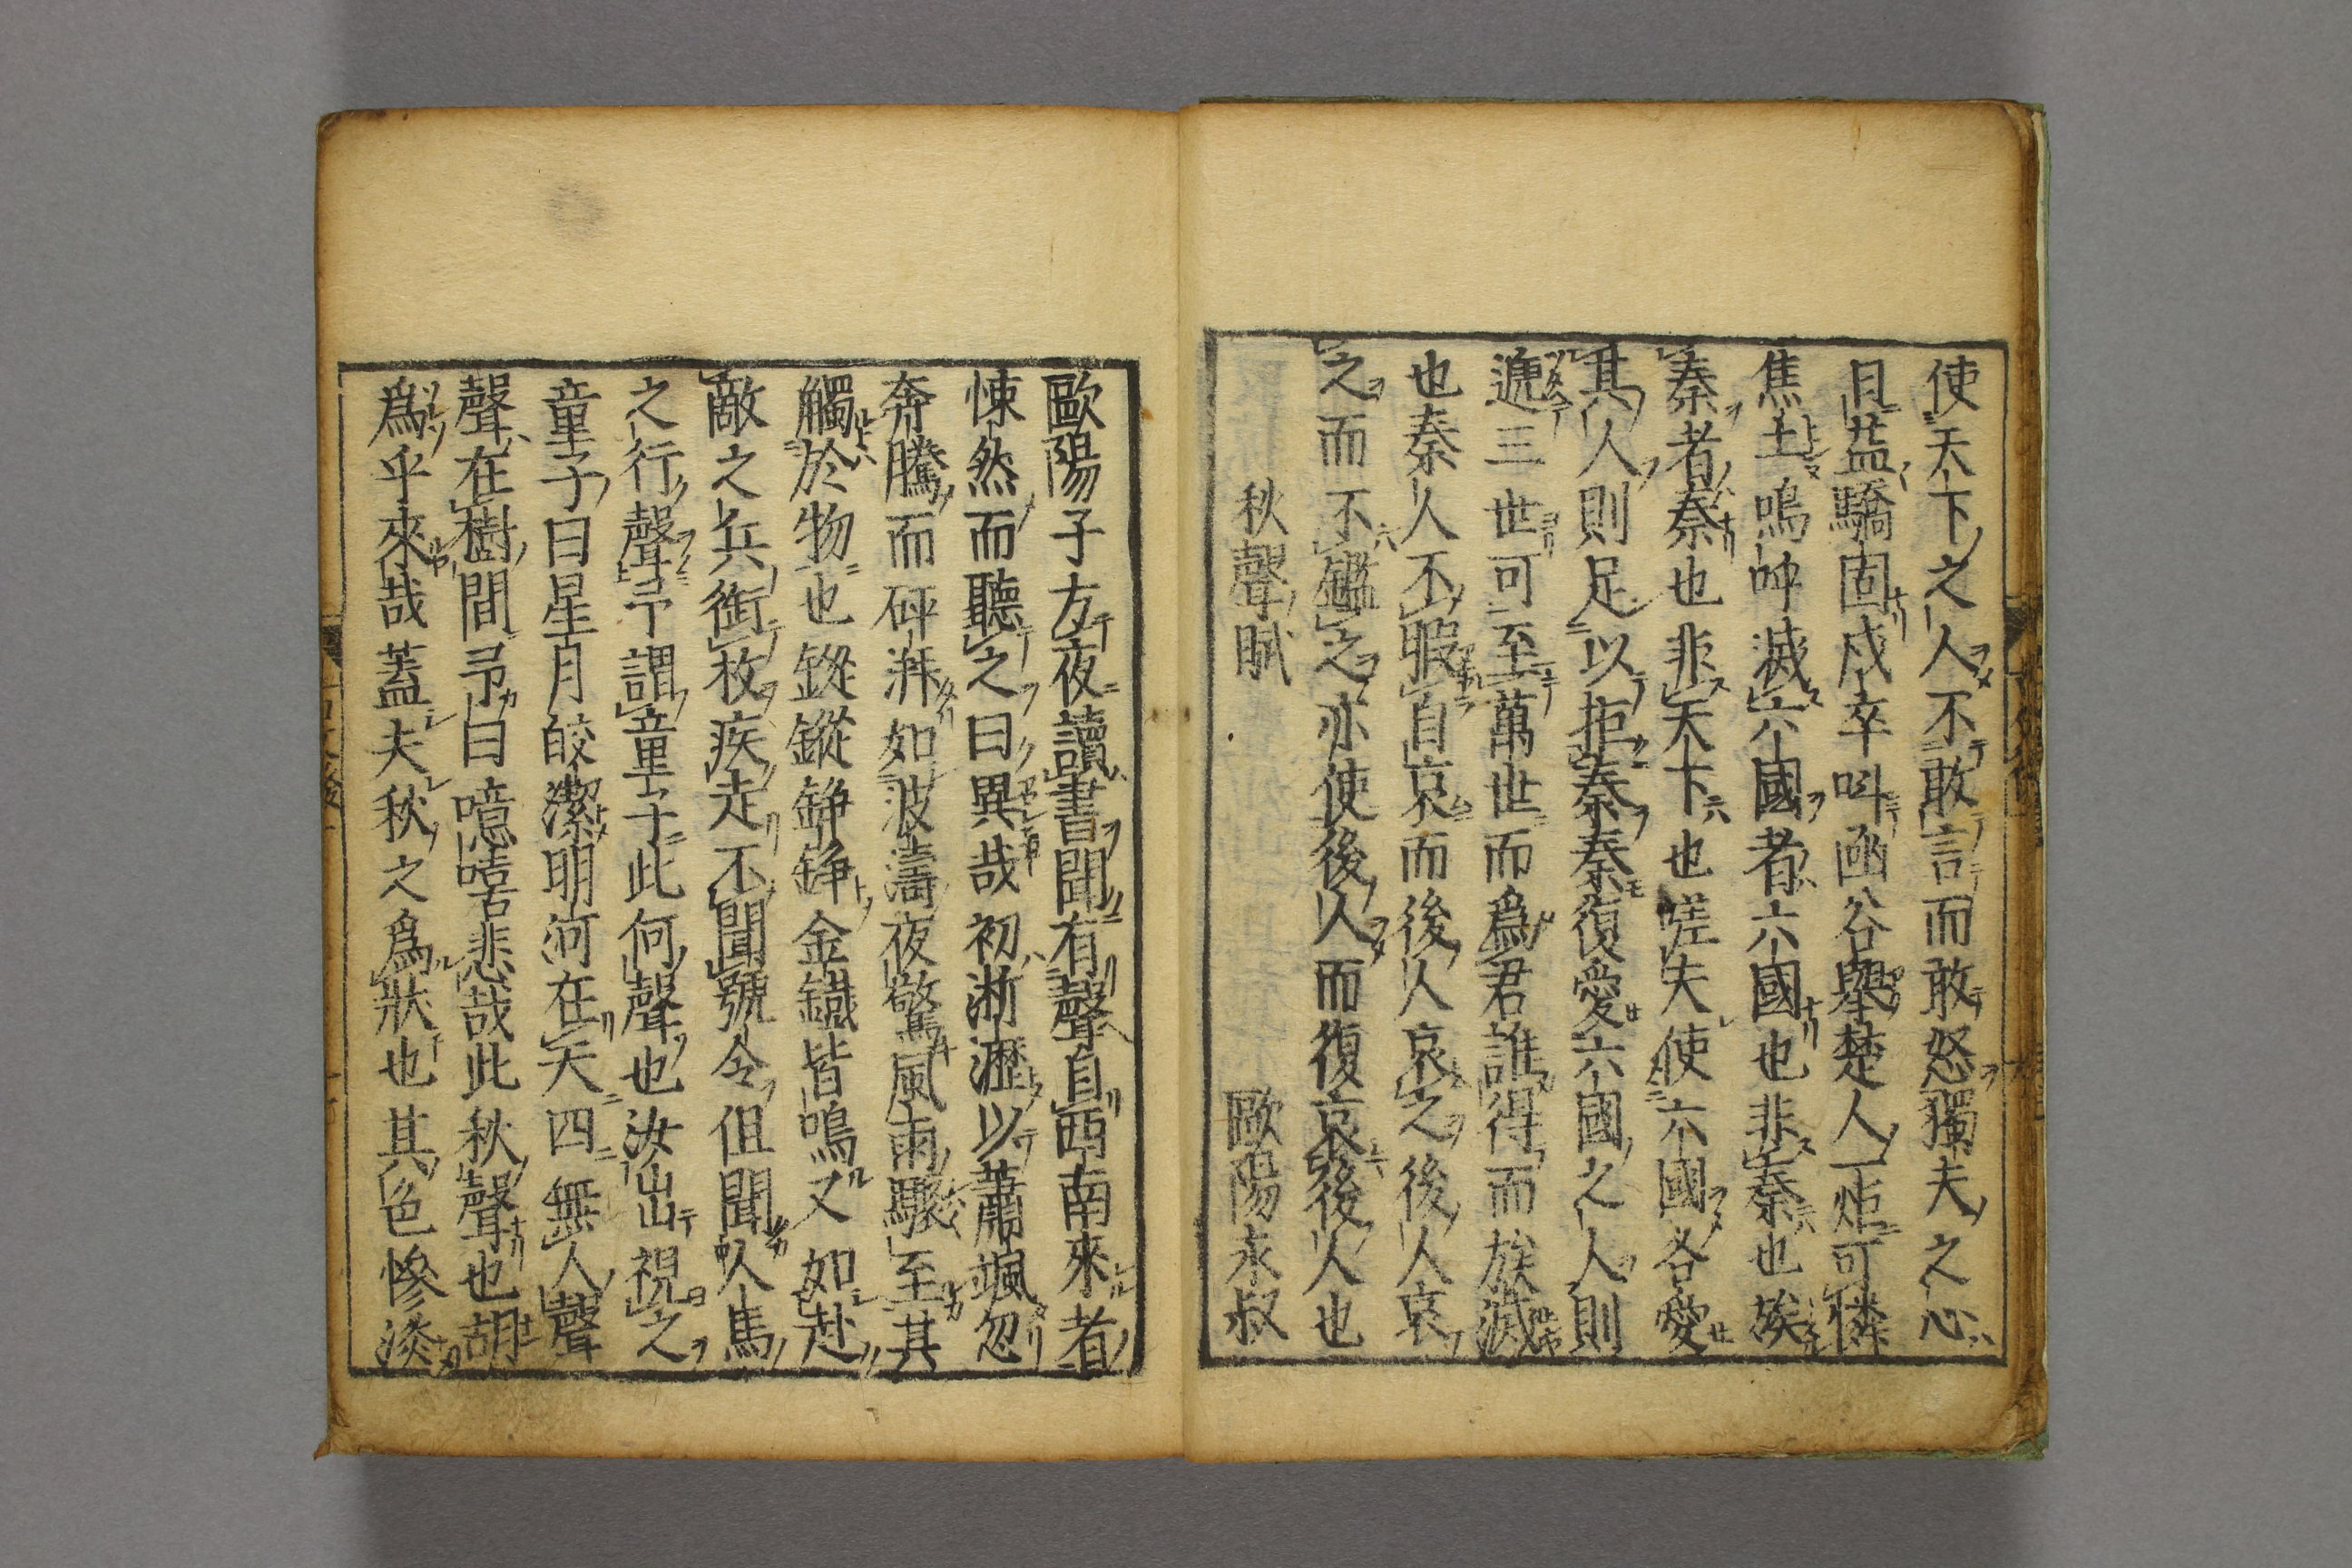 使天下之人不敢言而敢怒獨夫之心
日益驕固戍卒呌凾谷舉楚人一炬可憐
焦土嗚呼滅六國者六國也非秦也族
秦者秦也非天下也嗟夫使六國各愛
其人則足以拒秦秦復愛六國之人則
遞三世可至萬世而爲君誰得而族滅
也秦人不暇自哀而後人哀之後人哀
之而不鑑之亦使後人而復哀後人也
秋聲賦 歐陽永叔
歐陽子方夜讀書聞有聲自西南來者
悚然而聽之曰異哉初淅瀝以蕭颯忽
奔騰而砰湃如波濤夜驚風雨驟至其
觸於物也鏦鏦錚錚金鐡皆鳴又如赴
敵之兵銜枚疾走不聞號令但聞人馬
之行聲予謂童子此何聲也汝出視之
童子曰星月皎潔明河在天四無人聲
聲在樹間予曰噫嘻悲哉此秋聲也胡
爲乎來哉蓋夫秋之爲狀也其色慘淡